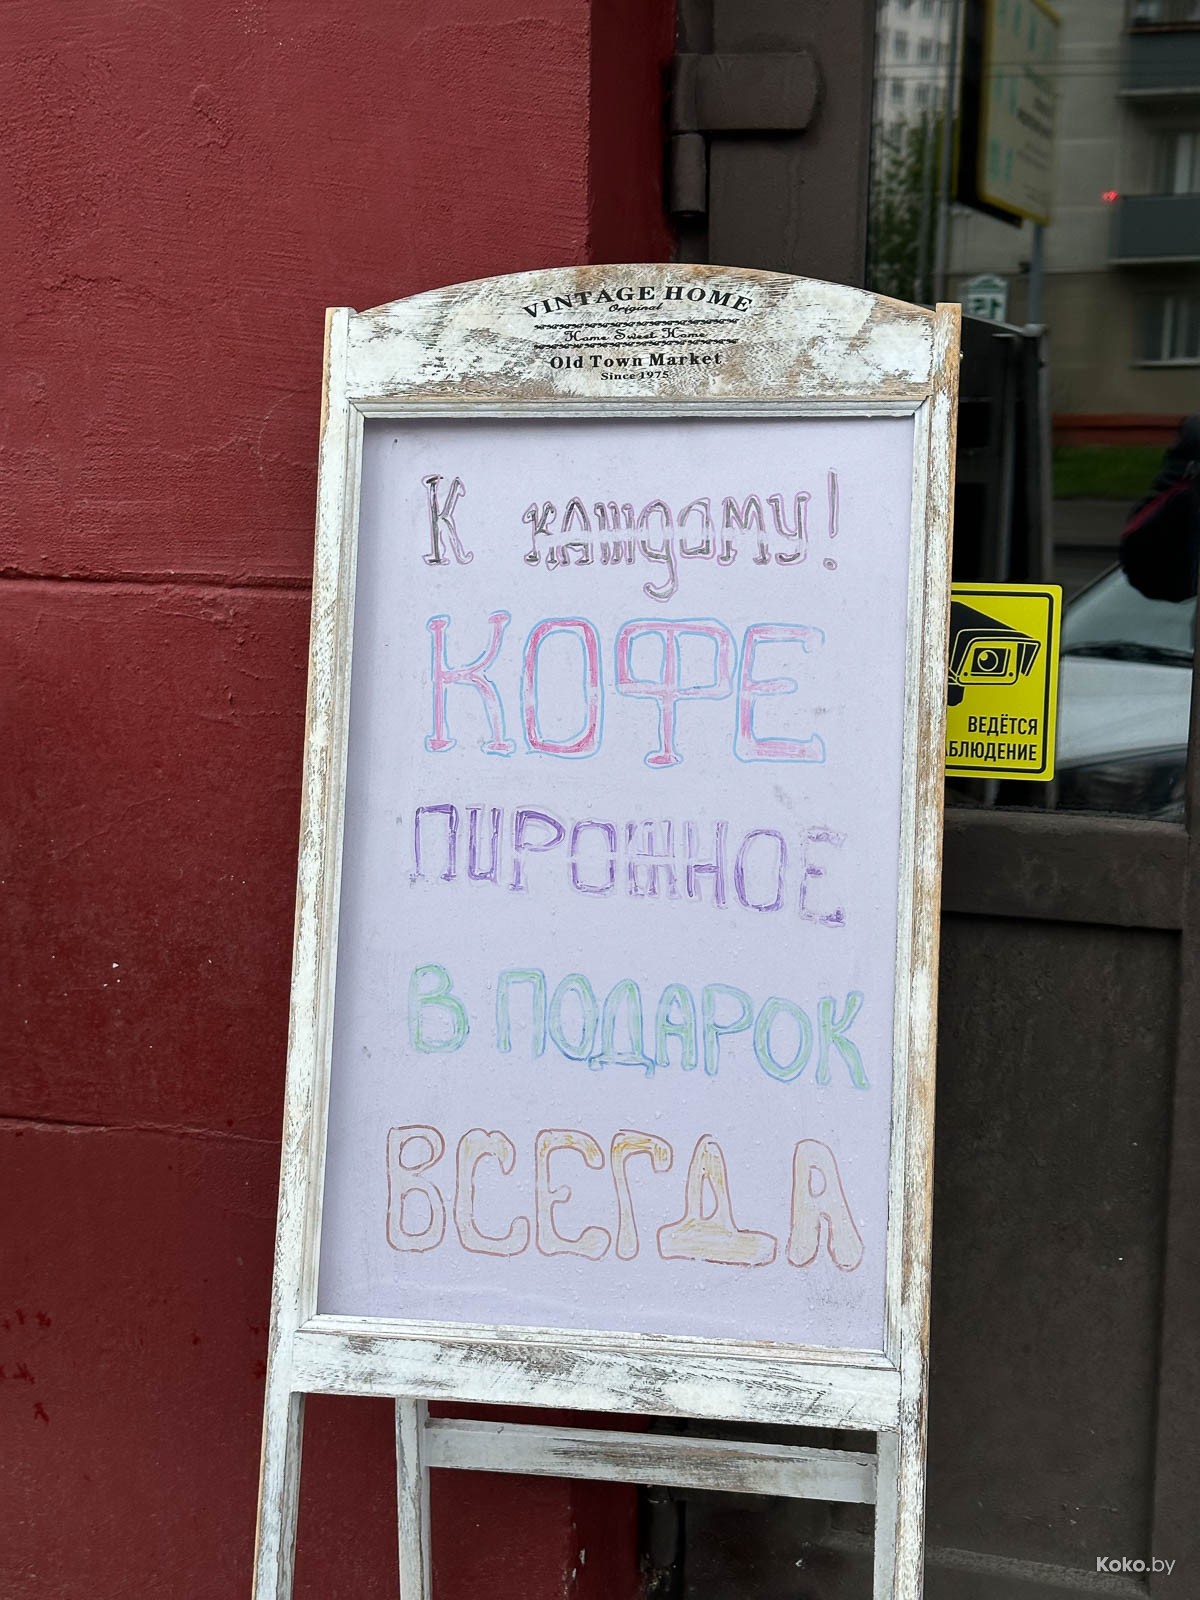 VINTAGE HOME
Original
Home Sweet Home
Old Town Market
Since 1975
К каждому!
КОФЕ
ПИРОЖНОЕ
В ПОДАРОК
ВСЕГДА
ВЕДЁТСЯ
АБЛЮДЕНИЕ
15
Koko.by